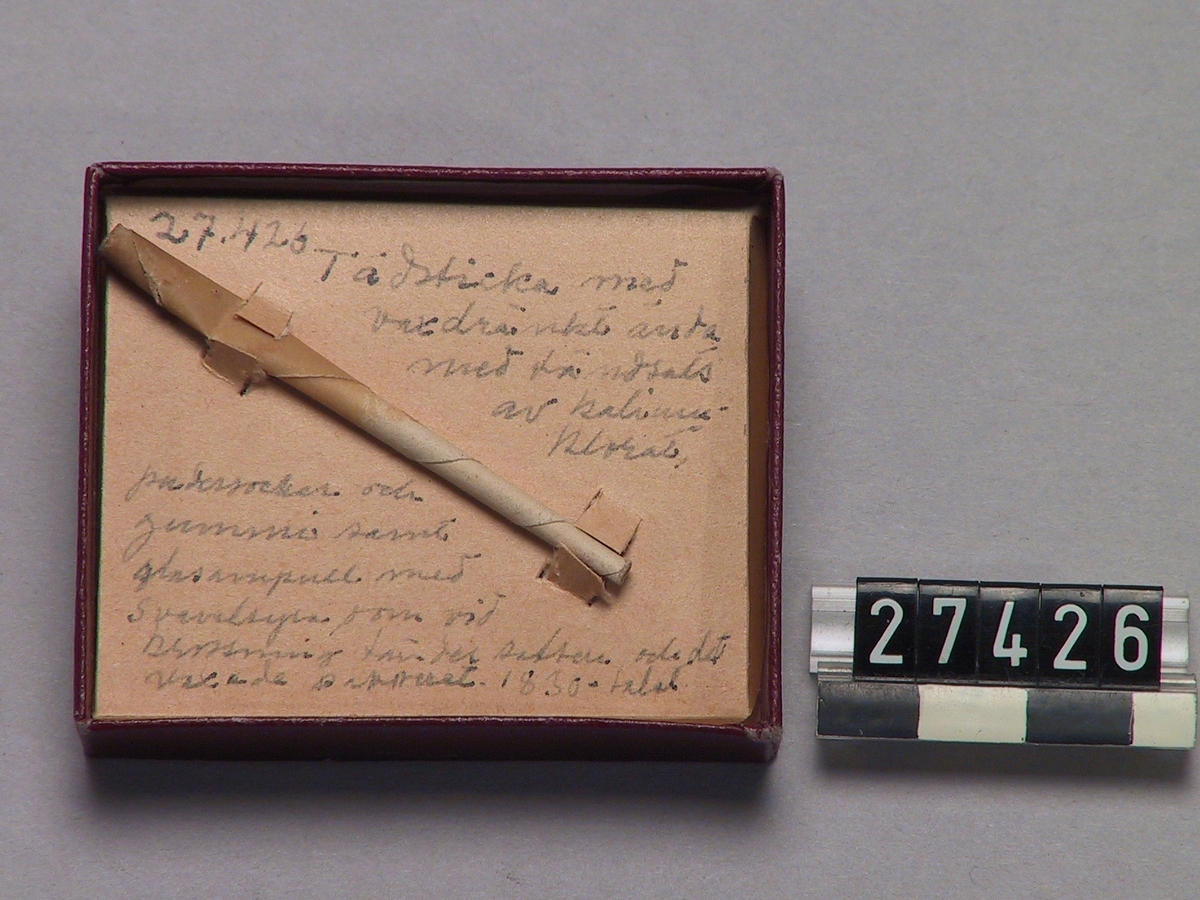 27.426
Tädsticka med
vaxdränkt ända
med tändsats
av kalium
klorat,
pudersocker och
gummi samt
glasampull med
svavelsyra som vid
krossning tänder satsen och det
vaxade papperet. 1830-talet
27426